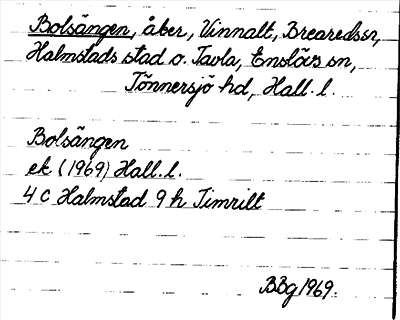 Bolsängen, åker, Vinnalt, Brearedssn,
Halmstads stad o. Tavla, Enslövs sn,
Tönnersjö hd, Hall. l.
Bolsängen
ek (1969) Hall. l.
4 C Halmstad 9 h Timrilt
BBg 1969.